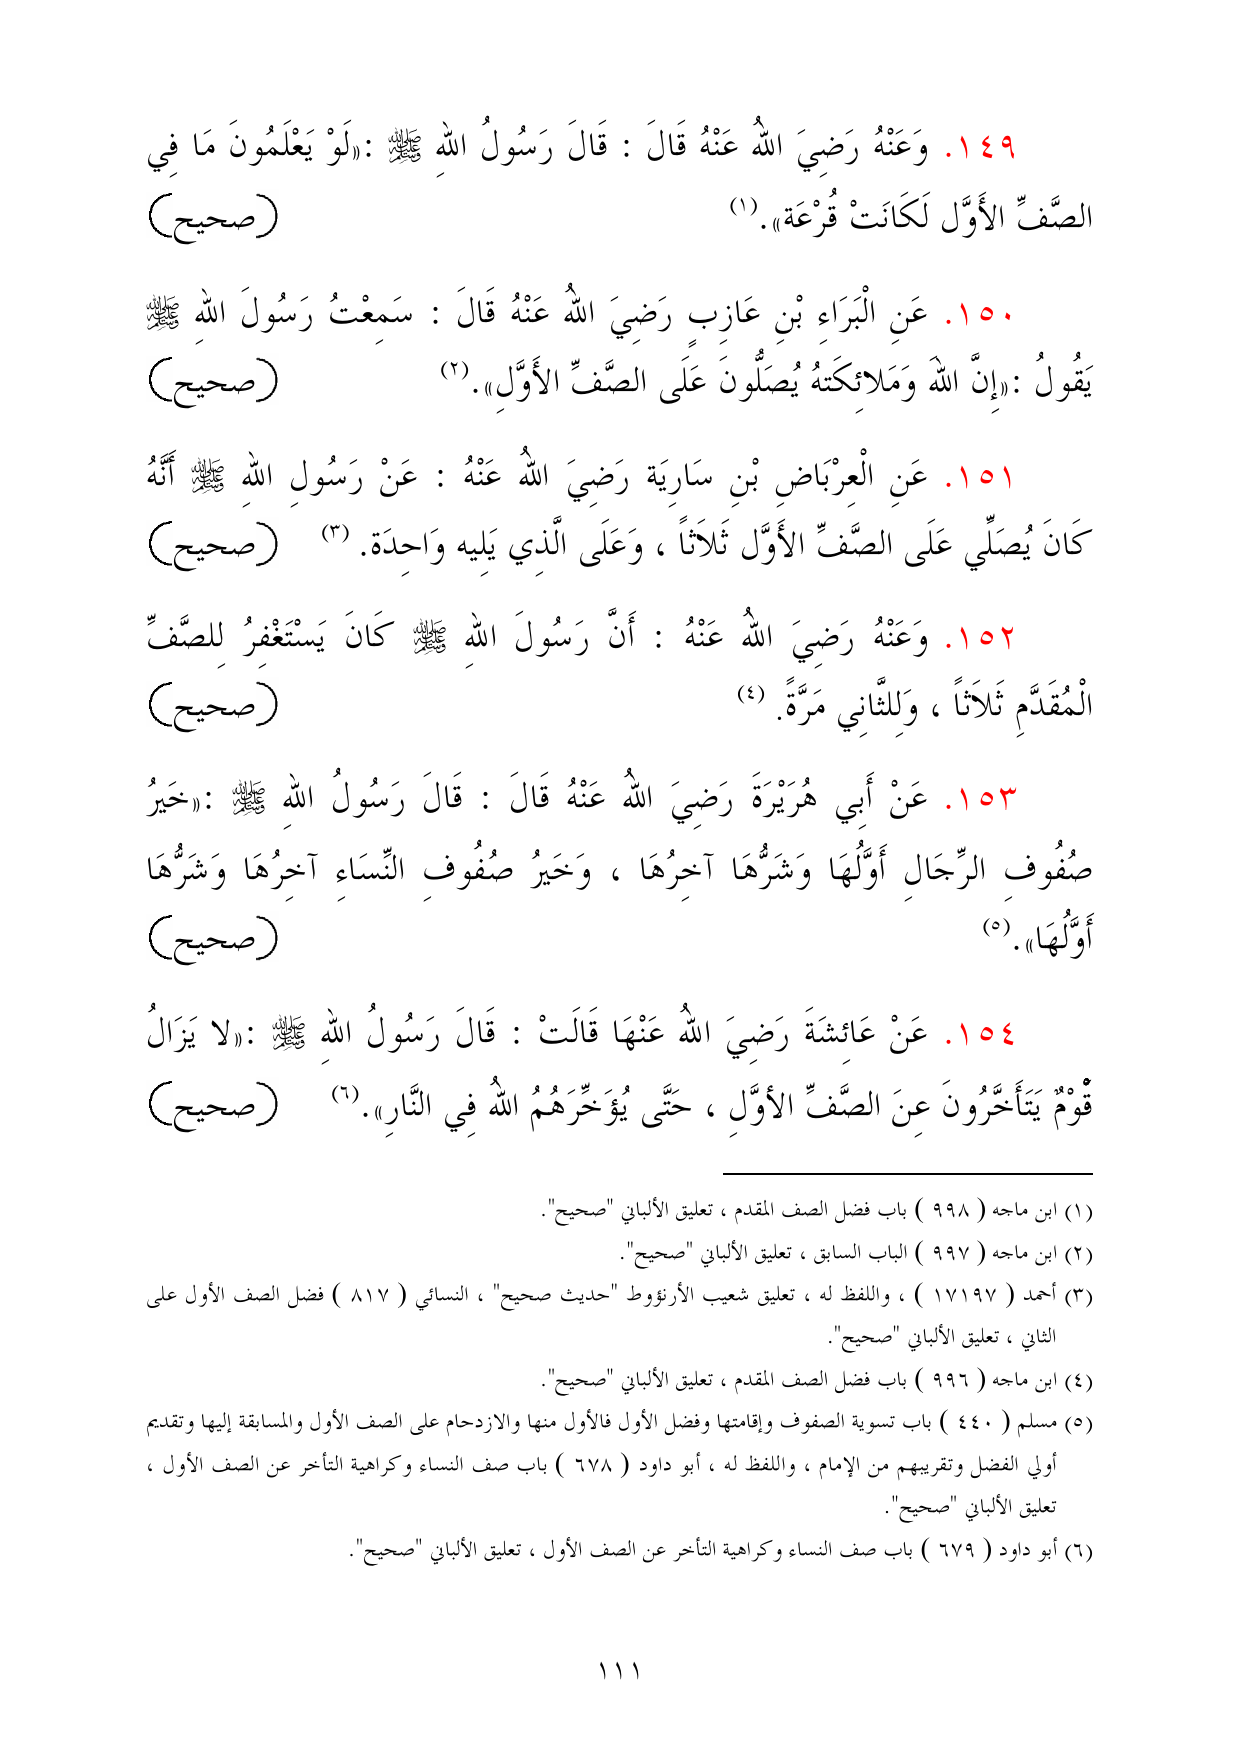 ١٤٩. وَعَنْهُ رَضِيَ اللهُ عَنْهُ قَالَ : قَالَ رَسُولُ اللهِ ﷺ :«لَوْ يَعْلَمُونَ مَا فِي
الصَّفِّ الأَوَّل لَكَانَتْ قُرْعَة».(١) (صحيح)
١٥٠. عَنِ الْبَرَاءِ بْنِ عَازِبٍ رَضِيَ اللهُ عَنْهُ قَالَ : سَمِعْتُ رَسُولَ اللهِ ﷺ
يَقُولُ :«إِنَّ اللهَ وَمَلائِكَتهُ يُصَلُّونَ عَلَى الصَّفِّ الأَوَّلِ».(٢) (صحيح)
١٥١. عَنِ الْعِرْبَاضِ بْنِ سَارِيَة رَضِيَ اللهُ عَنْهُ : عَنْ رَسُولِ اللهِ ﷺ أَنَّهُ
كَانَ يُصَلِّي عَلَى الصَّفِّ الأَوَّل ثَلاَثاً ، وَعَلَى الَّذِي يَلِيه وَاحِدَة. (٣) (صحيح)
١٥٢. وَعَنْهُ رَضِيَ اللهُ عَنْهُ : أَنَّ رَسُولَ اللهِ ﷺ كَانَ يَسْتَغْفِرُ لِلصَّفِّ
الْمُقَدَّمِ ثَلاَثاً ، وَلِلثَّانِي مَرَّةً. (٤) (صحيح)
١٥٣. عَنْ أَبِي هُرَيْرَةَ رَضِيَ اللهُ عَنْهُ قَالَ : قَالَ رَسُولُ اللهِ ﷺ :«خَيرُ
صُفُوفِ الرِّجَالِ أَوَّلُهَا وَشَرُّهَا آخِرُهَا ، وَخَيرُ صُفُوفِ النِّسَاءِ آخِرُهَا وَشَرُّهَا
أَوَّلُهَا».(٥) (صحيح)
١٥٤. عَنْ عَائِشَةَ رَضِيَ اللهُ عَنْهَا قَالَتْ : قَالَ رَسُولُ اللهِ ﷺ :«لا يَزَالُ
قَوْمٌ يَتَأَخَّرُونَ عِنَ الصَّفِّ الأوَّلِ ، حَتَّى يُؤَخِّرَهُمُ اللهُ فِي النَّارِ».(٦) (صحيح)
(١) ابن ماجه ( ٩٩٨ ) باب فضل الصف المقدم ، تعليق الألباني "صحيح".
(٢) ابن ماجه ( ٩٩٧ ) الباب السابق ، تعليق الألباني "صحيح".
(٣) أحمد ( ١٧١٩٧ ) ، واللفظ له ، تعليق شعيب الأرنؤوط "حديث صحيح" ، النسائي ( ٨١٧ ) فضل الصف الأول على
الثاني ، تعليق الألباني "صحيح".
(٤) ابن ماجه ( ٩٩٦ ) باب فضل الصف المقدم ، تعليق الألباني "صحيح".
(٥) مسلم ( ٤٤٠ ) باب تسوية الصفوف وإقامتها وفضل الأول فالأول منها والازدحام على الصف الأول والمسابقة إليها وتقديم
أولي الفضل وتقريبهم من الإمام ، واللفظ له ، أبو داود ( ٦٧٨ ) باب صف النساء وكراهية التأخر عن الصف الأول ،
تعليق الألباني "صحيح".
(٦) أبو داود ( ٦٧٩ ) باب صف النساء وكراهية التأخر عن الصف الأول ، تعليق الألباني "صحيح".
١١١